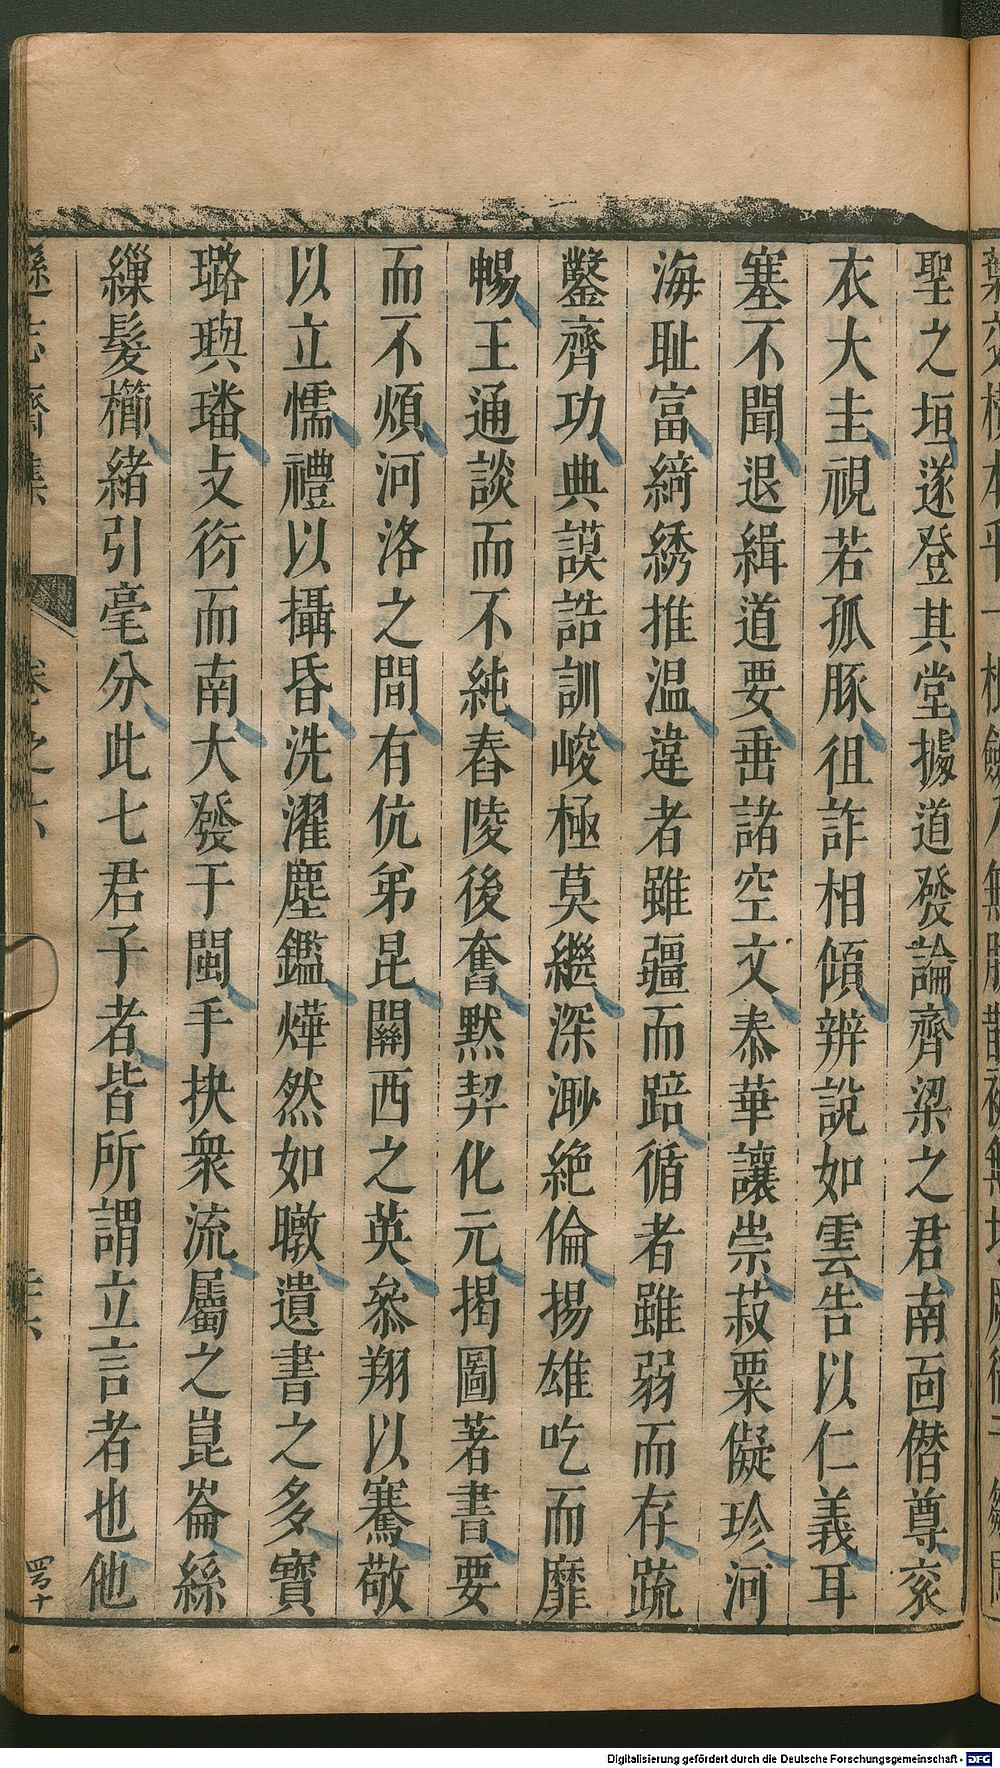 聖之垣遂登其堂據道發論齊梁之君南面僣尊衮
衣大圭視若孤豚徂詐相傾辨說如雲告以仁義耳
塞不聞退緝道要垂諸空文泰華讓崇菽粟儗珍河
海耻富綺綉推温違者雖彊而踣循者雖弱而存䟽
鑿齊功典謨誥訓峻極莫繼深渺絶倫揚雄吃而靡
暢王通談而不純舂陵後奮默契化元揭圖著書要
而不煩河洛之間有伉弟昆關西之英叅翔以騫敬
以立懦禮以攝昏洗濯塵鑑燁然如暾遺書之多寶
璐璵璠攴衍而南大發于閩手抉衆流屬之崑崙絲
繅髮櫛緒引毫分此七君子者皆所謂立言者也他
遜志齋集 卷之六
Digitalisierung gefördert durch die Deutsche Forschungsgemeinschaft - DFG